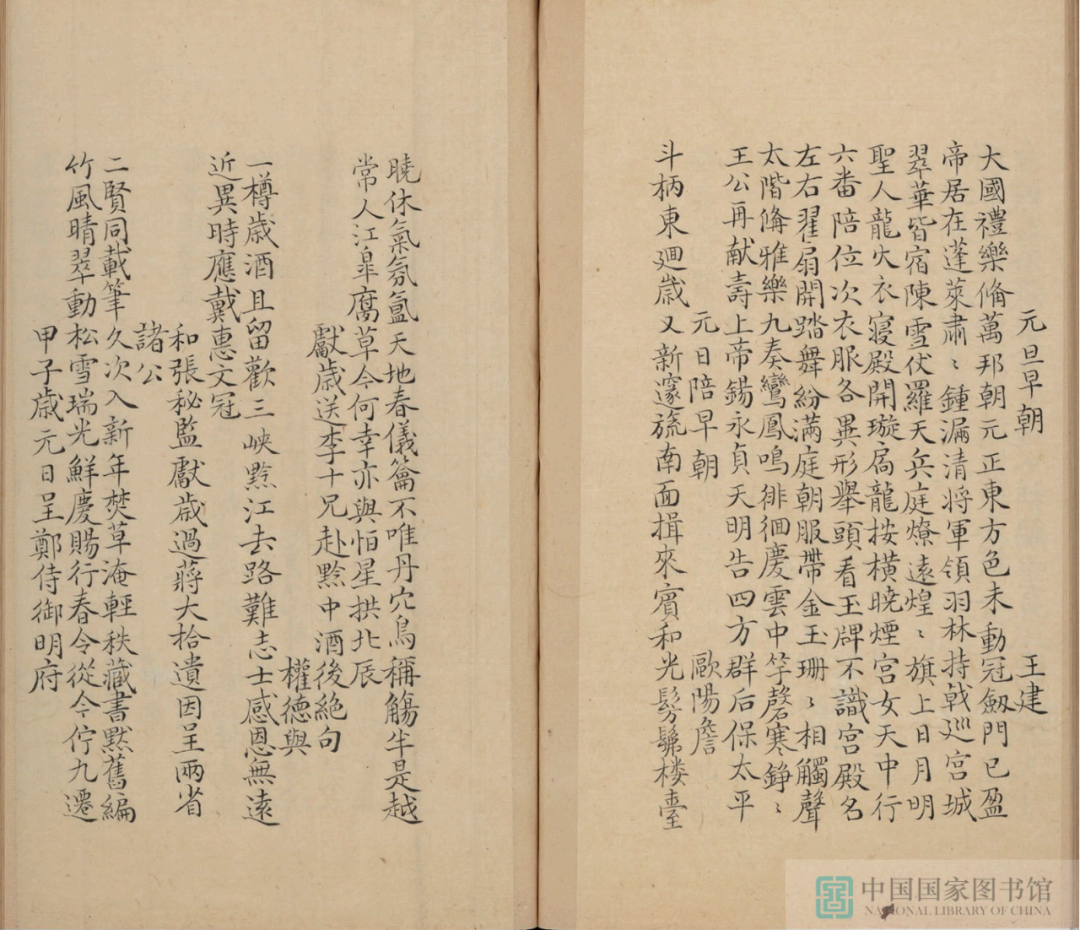 元旦早朝 王建
大國禮樂俻萬邦朝元正東方色未動冠劔門已盈
帝居在蓬萊肅〻鍾漏清將軍領羽林持戟巡宮城
翠華皆宿陳雪伏羅天兵庭燎遠煌〻旗上日月明
聖人龍火衣寝殿開璇扃龍按橫晓煙宮女天中行
六番陪位次衣服各異形舉頭看玉牌不識宮殿名
左右翟扇開踏舞紛滿庭朝服帶金玉珊〻相觸聲
太階俻雅樂九奏鸞鳳鳴徘徊慶雲中竽磬寒錚〻
王公再献壽上帝錫永貞天明告四方群后保太平
元日陪早朝 歐陽詹
斗柄東廻歳又新邃旒南面揖來賓和光髣髴楼臺
曉休氣氛氳天地春儀籥不唯丹穴鳥稱觴半是越
常人江皐腐草今何幸亦與恒星拱北辰
獻歳送李十兄赴黔中酒後絕句
權德與
一樽歳酒且留歡三峽黔江去路難志士感恩無遠
近異時應戴惠文冠
和張秘監獻歳過蔣大拾遺因呈兩省
諸公
二賢同載筆久次入新年焚草淹輕秩藏書黙舊編
竹風晴翠動松雪瑞光鮮慶賜行春令從今佇九遷
甲子歳元日呈鄭侍御明府
中国国家图书馆
NATIONAL LIBRARY OF CHINA